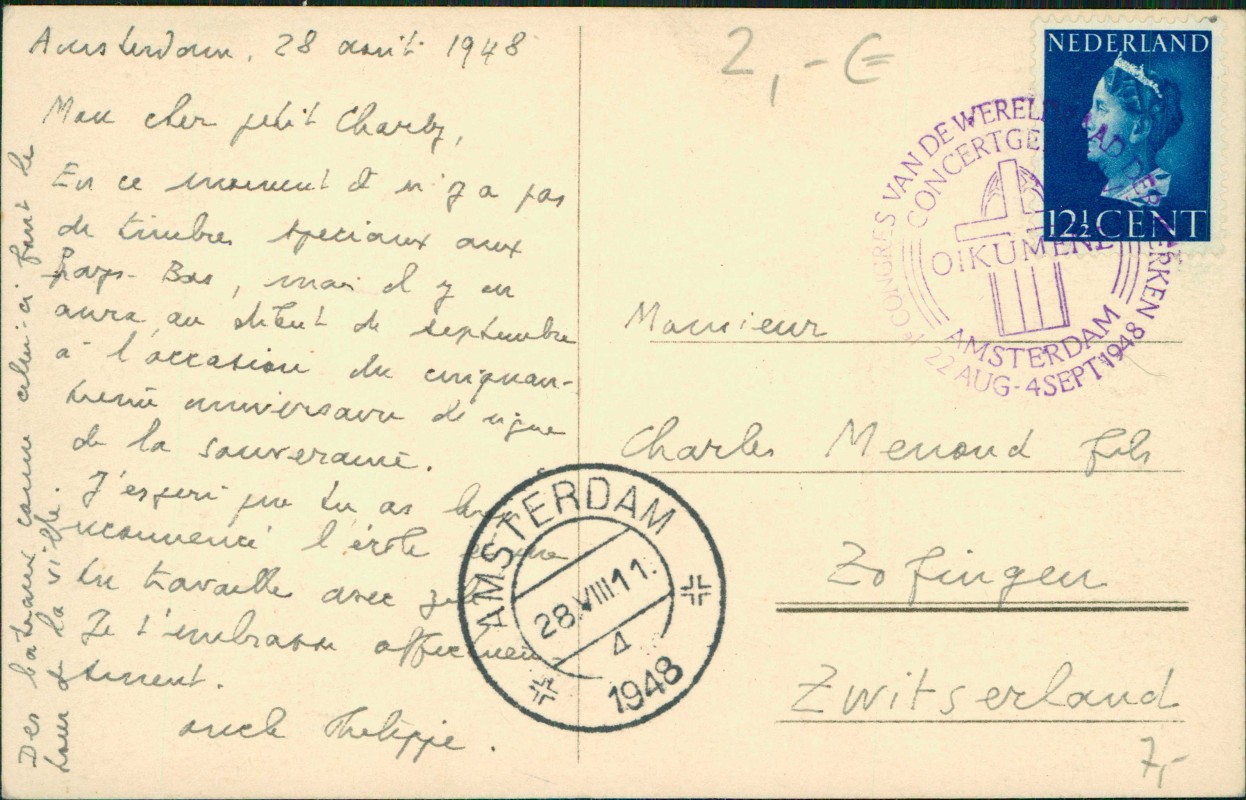 Amsterdam, 28 août 1948
Mon cher petit Charly,
En ce moment il n'y a pas
de timbres spéciaux aux
Pays-Bas, mais il y en
aura au début de septembre
à l'occasion du cinquan-
tième anniversaire de règne
de la souveraine.
J'espère que tu as
recommencé l'école
tu travailles avec
Je t'embrasse affectueu
sement.
oncle Philippe.
Des bateaux comme celui-ci font le
tour de la ville.
2,- €
NEDERLAND
12½ CENT
1e CONGRES VAN DE WERELDRAAD DER KERKEN
CONCERTGE
OIKUMENE
AMSTERDAM
22 AUG-4 SEPT 1948
Monsieur
Charles Menoud fils
Zofingen
Zwitserland
7,-
AMSTERDAM
28.VIII 11.
4
1948